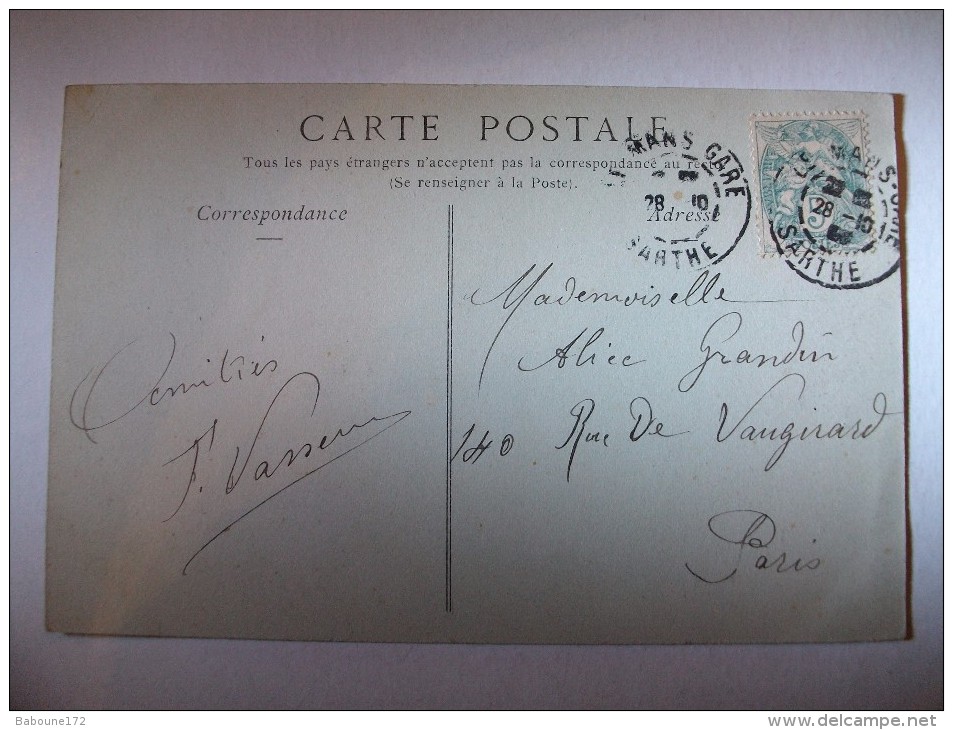 CARTE POSTALE
Tous les pays étrangers n'acceptent pas la correspondance au recto
(Se renseigner à la Poste).
Correspondance
Adresse
MANS GARE
28 -10
SARTHE
MANS-GARE
28 -10
SARTHE
5
Amitiés
F. Vasseur
Mademoiselle
Alice Grandin
140 Rue De Vaugirard
Paris
Baboune172
www.delcampe.net